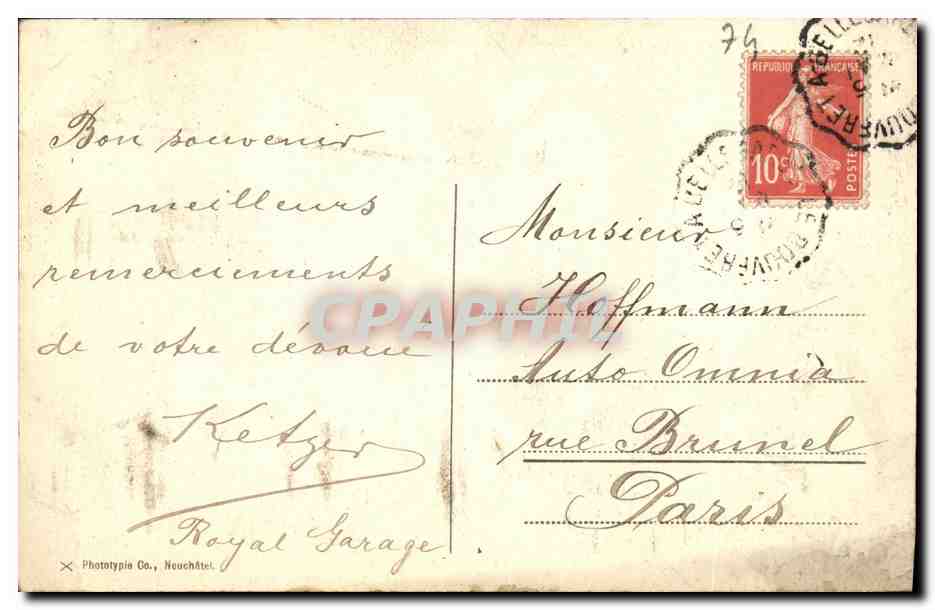 74
REPUBLIQUE FRANÇAISE
10c
POSTES
Bon souvenir
et meilleurs
remerciements
de votre dévoué
Ketzer
Royal Garage
Monsieur
Hoffmann
Auto Omnia
rue Brunel
Paris
CPAPHIL
Phototypie Co., Neuchâtel.